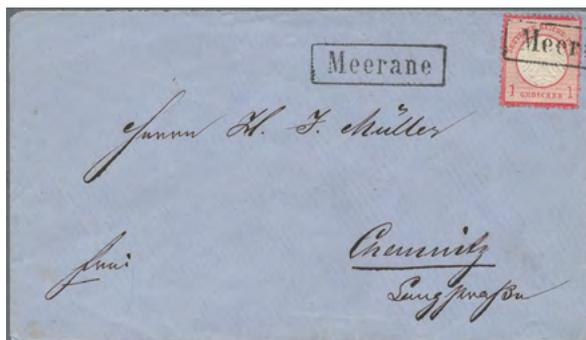 Meerane
Meer
1 GROSCHEN 1
Herrn H. F. Müller
frei
Chemnitz
Langstraße